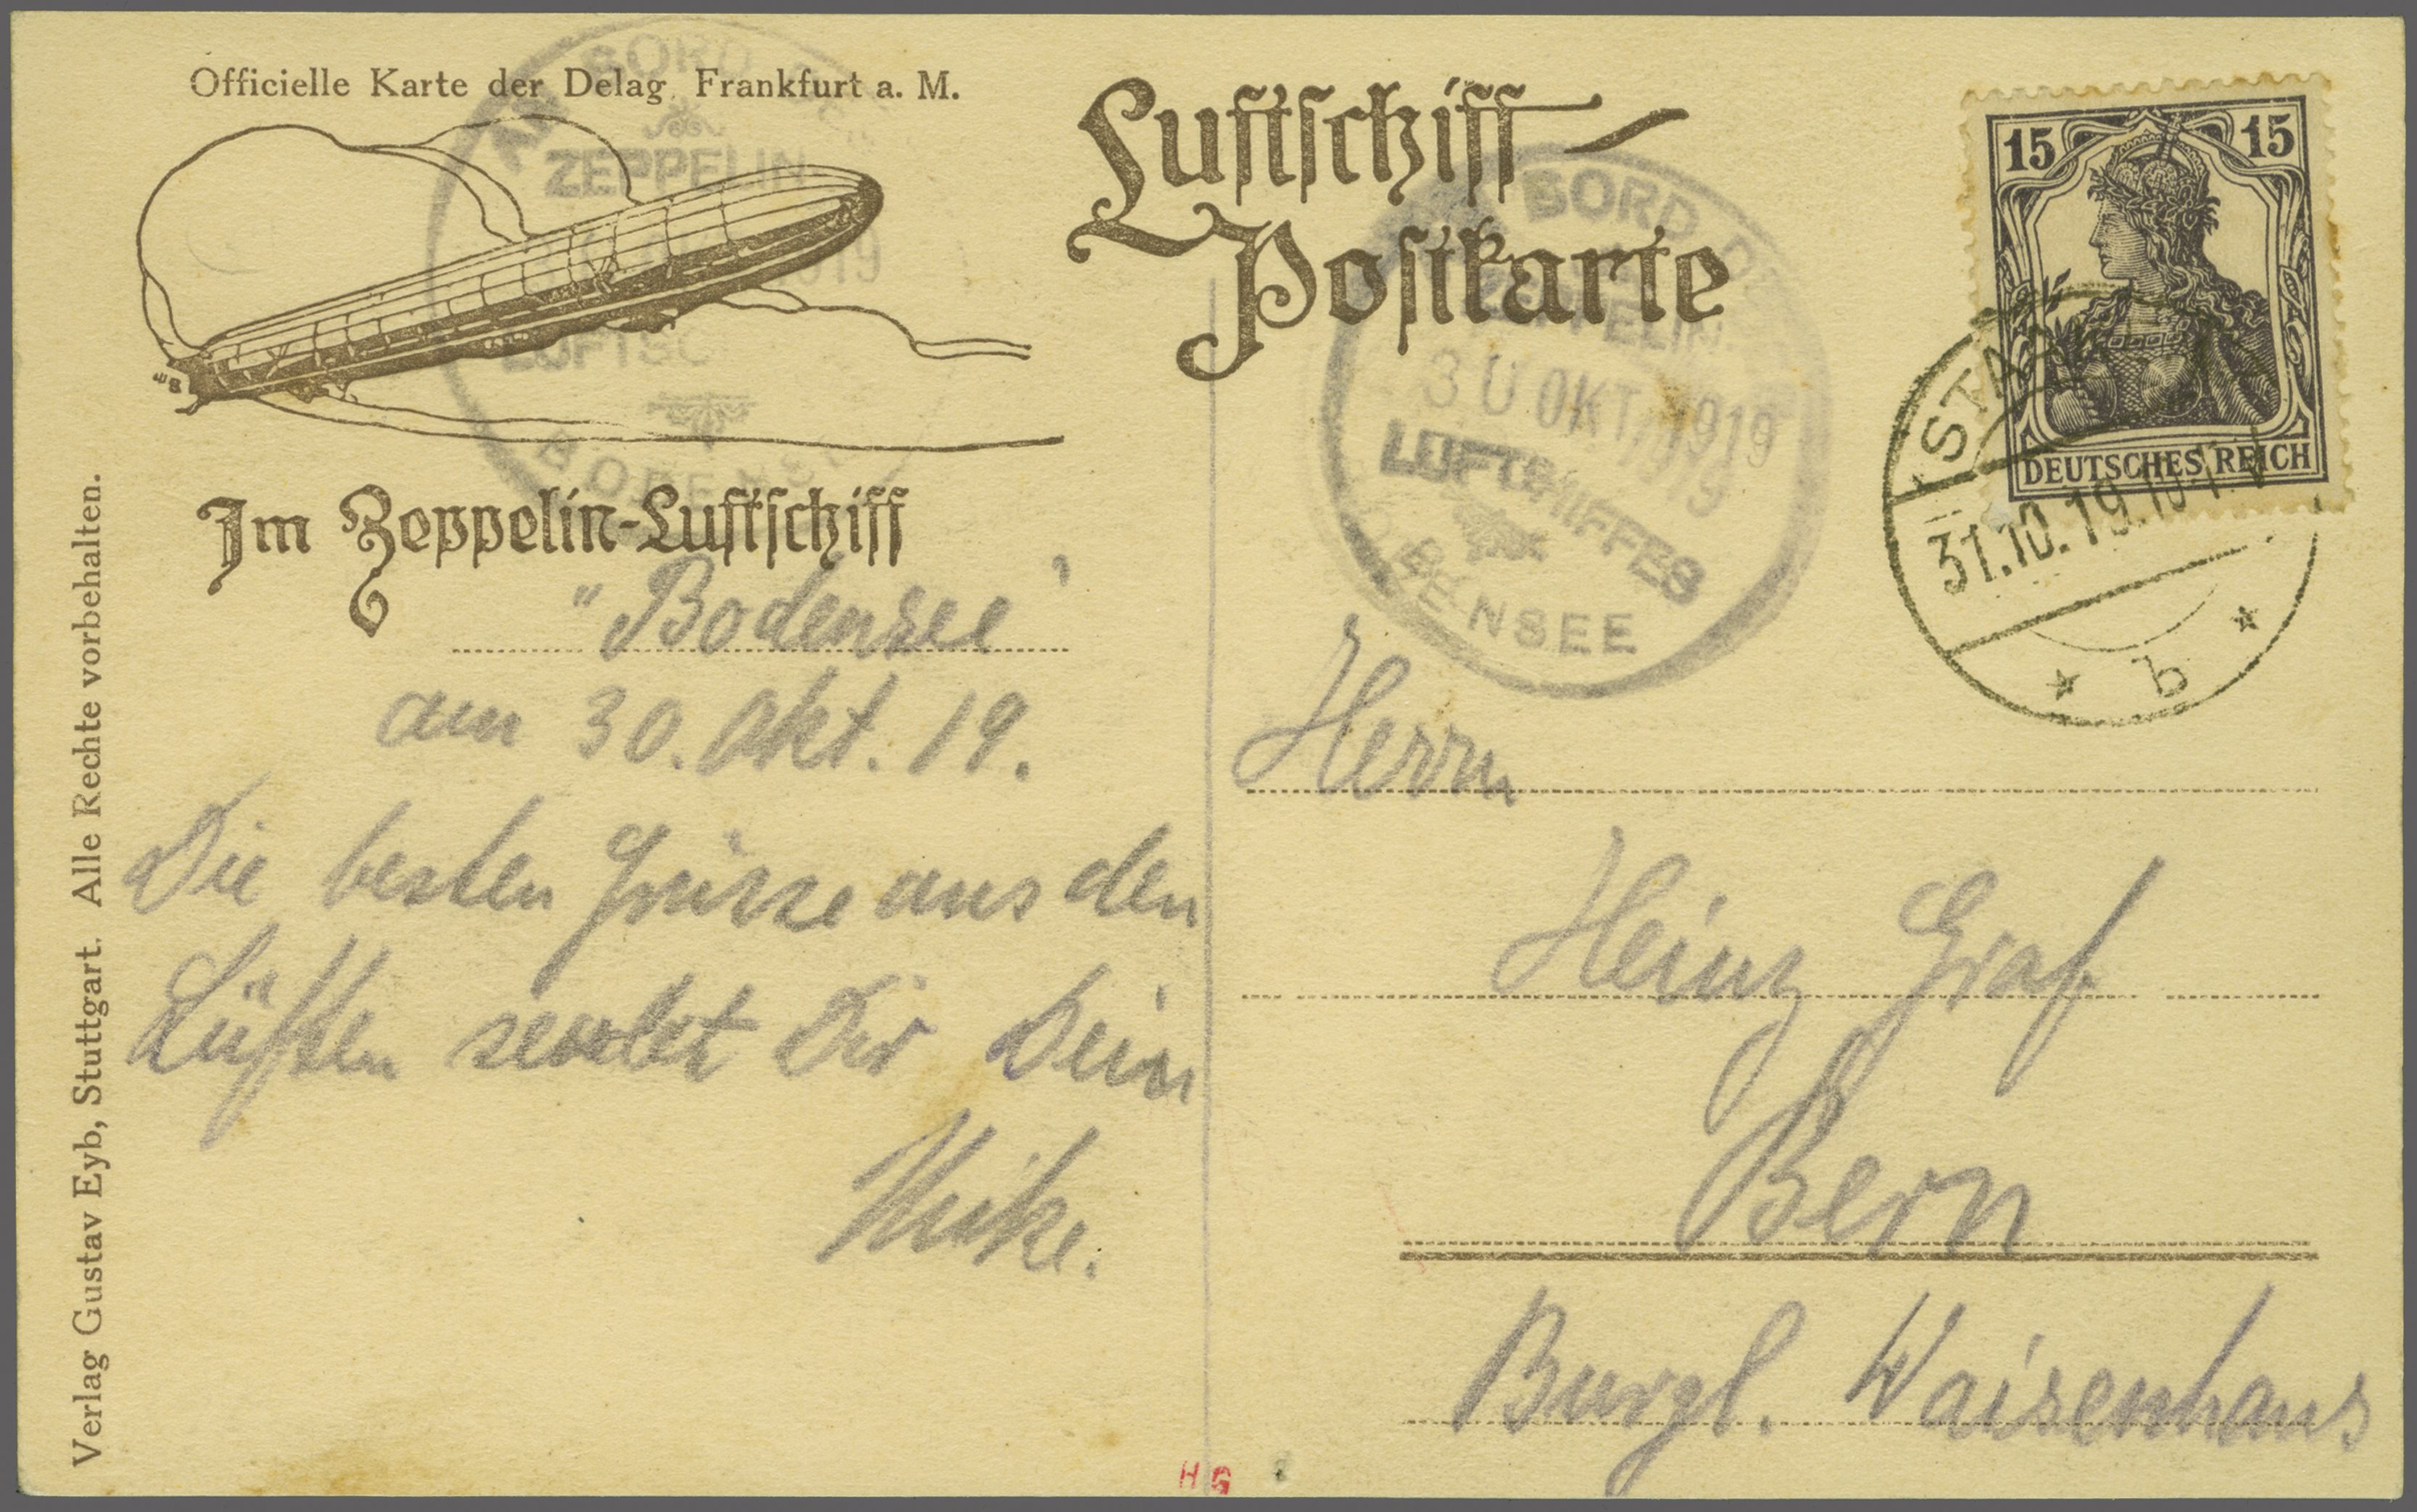 Officielle Karte der Delag Frankfurt a. M.
Luftschiff-
Postkarte
AN BORD
ZEPPELIN
1919
LUFTSC
BODENSE
BORD DE
ZEPPELIN
30 OKT. 1919
LUFTSCHIFFES
BODENSEE
15 15
DEUTSCHES REICH
STAA
31.10.19.10-11 V
* b *
Im Zeppelin-Luftschiff
"Bodensee"
am 30. Okt. 19.
Die besten Grüsse aus den
Lüften sendet Dir Dein
Herrn
Heinz Graf
Bern
Burgl. Waisenhaus
Verlag Gustav Eyb, Stuttgart. Alle Rechte vorbehalten.
H G